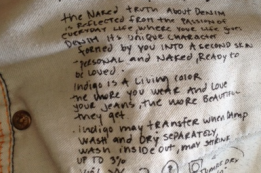 the Naked truth About Denim
is Reflected from the Passion of
everyday life, where your life gives
Denim its unique character
formed by you into a second skin
personal and Naked, Ready to
be loved.
Indigo is a Living color
the more you wear and Love
your Jeans, the more Beautiful
they get
Indigo may transfer when Damp
Wash and Dry separately,
Wash inside out, may shrink
up to 3%
Tumble Dry